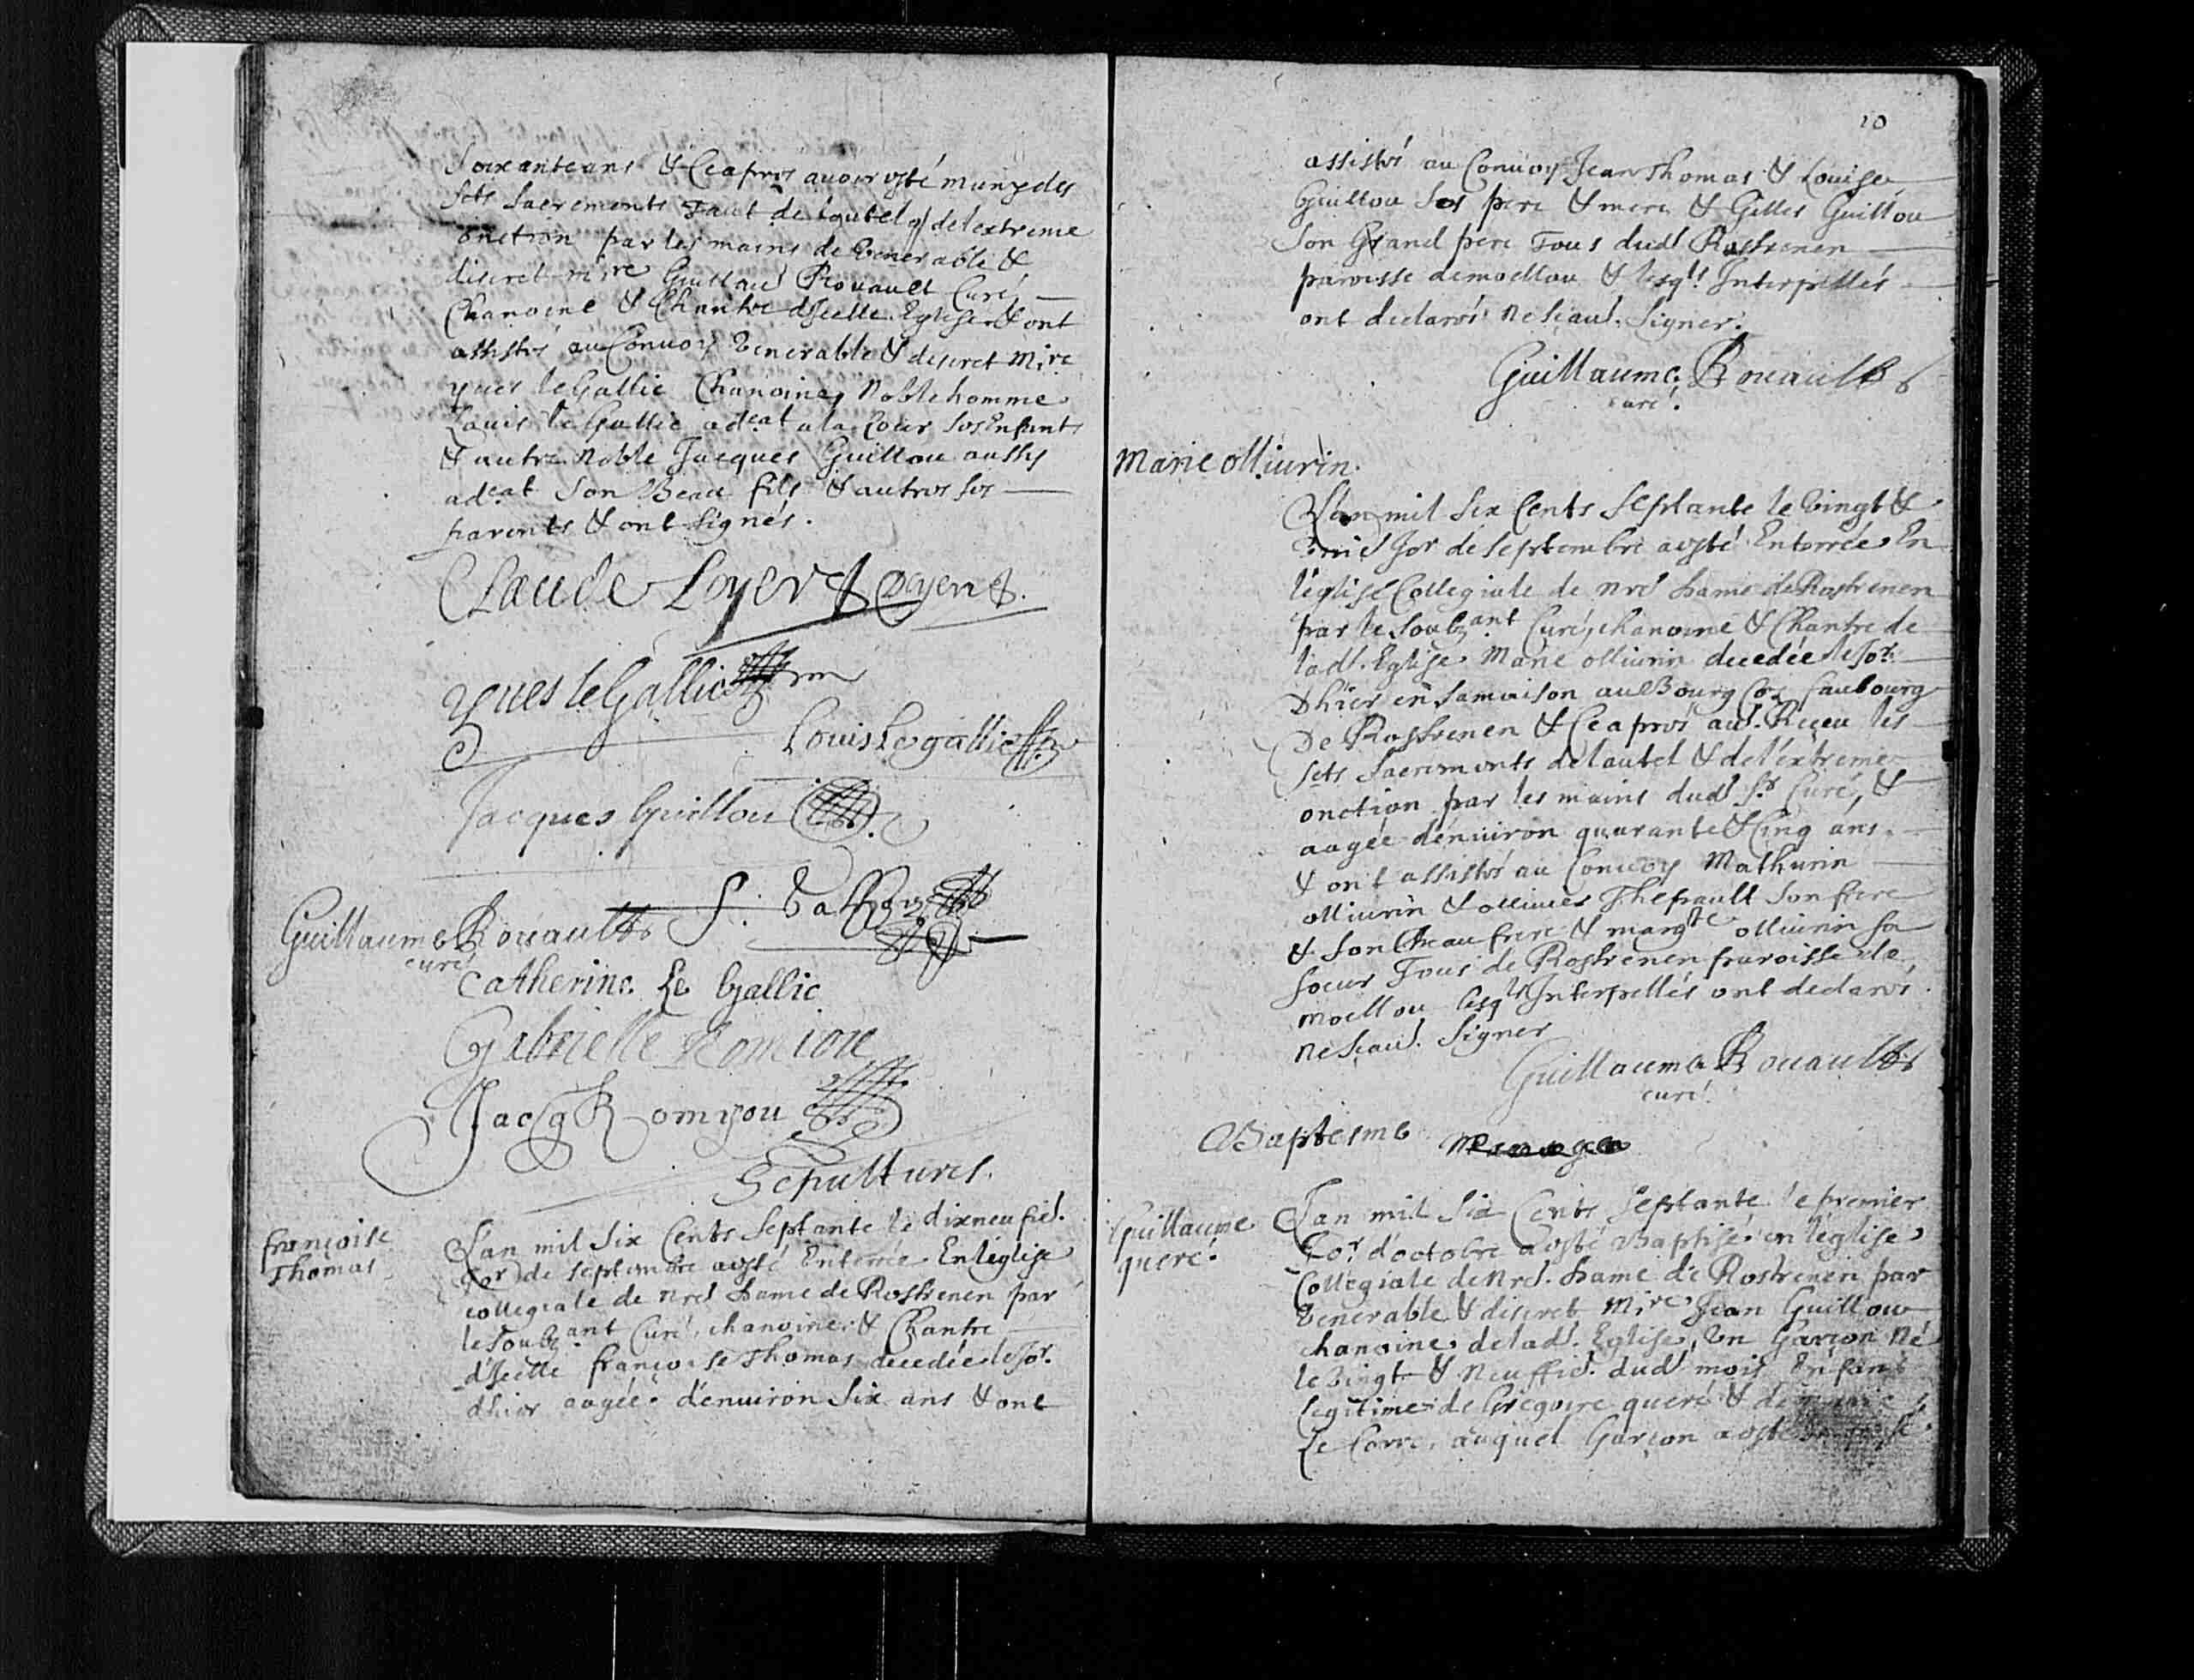 Soixante ans & Ce apres auoir esté muny des
Sts Sacrements Tant de lautel q de lextreme
onction par les mains de Venerable &
discret mire Guillau Rouault Curé
Chanoine & Chantre dIcelle Eglise & ont
assistés au Conuoy Venerable & discret Mire
yues le Gallic Chanoine, Noble homme
Louis le Gallic adcat a la Cour ses Enfants
& autre Noble Jacques Guillou aussy
adcat Son Beau fils & autres ses
parents & ont Signés.
Claude Loyer Doyen
yues le Gallic
Louis Le gallic
Jacques Guillou
Guillaume Rouault
curé
Catherine Le Gallic
Gabrielle Romiou
Jacq Romyou
Sepultures.
françoise
Thomas
Lan mil Six Cents Septante le dixneufie.
Jor de Septembre a esté Enterrée En leglise
collegiale de nre Dame de Rostrenen par
le Soubz.ant Curé, chanoine & Chantre
dIcelle françoise Thomas decedée le Jor.
dhier aagée d'enuiron Six ans & ont
10
assistés au Conuoy Jean Thomas & Louise
Guillou Ses pere & mere & Gilles Guillou
Son Grand pere Tous dud Rostrenen
paroisse de moellou & lesqls Interpellés
ont declarés ne Scau. Signer.
Guillaume Rouault
curé.
Marie olliurin.
L'an mil Six Cents Septante le Vingt &
Unie Jor de Septembre a esté Enterrée En
l'église Collegiale de nre Dame de Rostrenen
par le Soubz.ant Curé, chanoine & Chantre de
lad. Eglise Marie olliurin decedée le Jor.
Dhier en Sa maison au Bourg Coz faubourg
De Rostrenen & Ce apres au. Reçeu les
Sts Sacrements de lautel & de l'extreme
onction par les mains dud Sr Curé, &
aagée denuiron quarante & Cinq ans.
& ont assistés au Conuoy Mathurin
olliurin & olliuier Thepault Son frere
& Son Beau frere & margte olliurin Sa
Soeur Tous de Rostrenen paroisse de
moellou lesqls Interpellés ont declarés
ne Scau. Signer
Guillaume Rouault
curé.
Baptesme
Guillaume
queré.
Lan mil Six Cents Septante le premier
Jor d'octobre a esté Baptisé en l'eglise
Collegiale de Nre. Dame de Rostrenen par
Venerable & discret Mire Jean Guillou
chanoine de lad. Eglise, Un Garçon Né
le Vingt & Neuffie. dud mois Enfant
legitime de Gregoire queré & de marie
Le Corre, auquel Garçon a esté